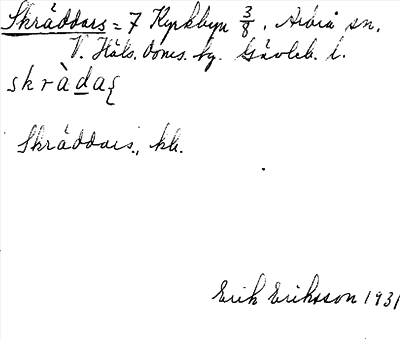 Skräddars = 7 Kyrkbyn 3/8. Arbrå sn.
V. Häls. doms. hg. Gävleb. l.
skràdaʃ
Skräddars., kk.
Erik Eriksson 1931